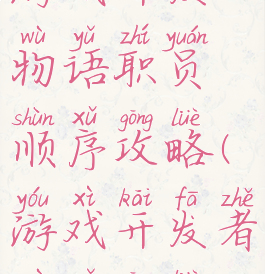 wù yǔ zhí yuán
物语职员
shùn xǔ gōng lüè
顺序攻略(
yóu xì kāi fā zhě
游戏开发者